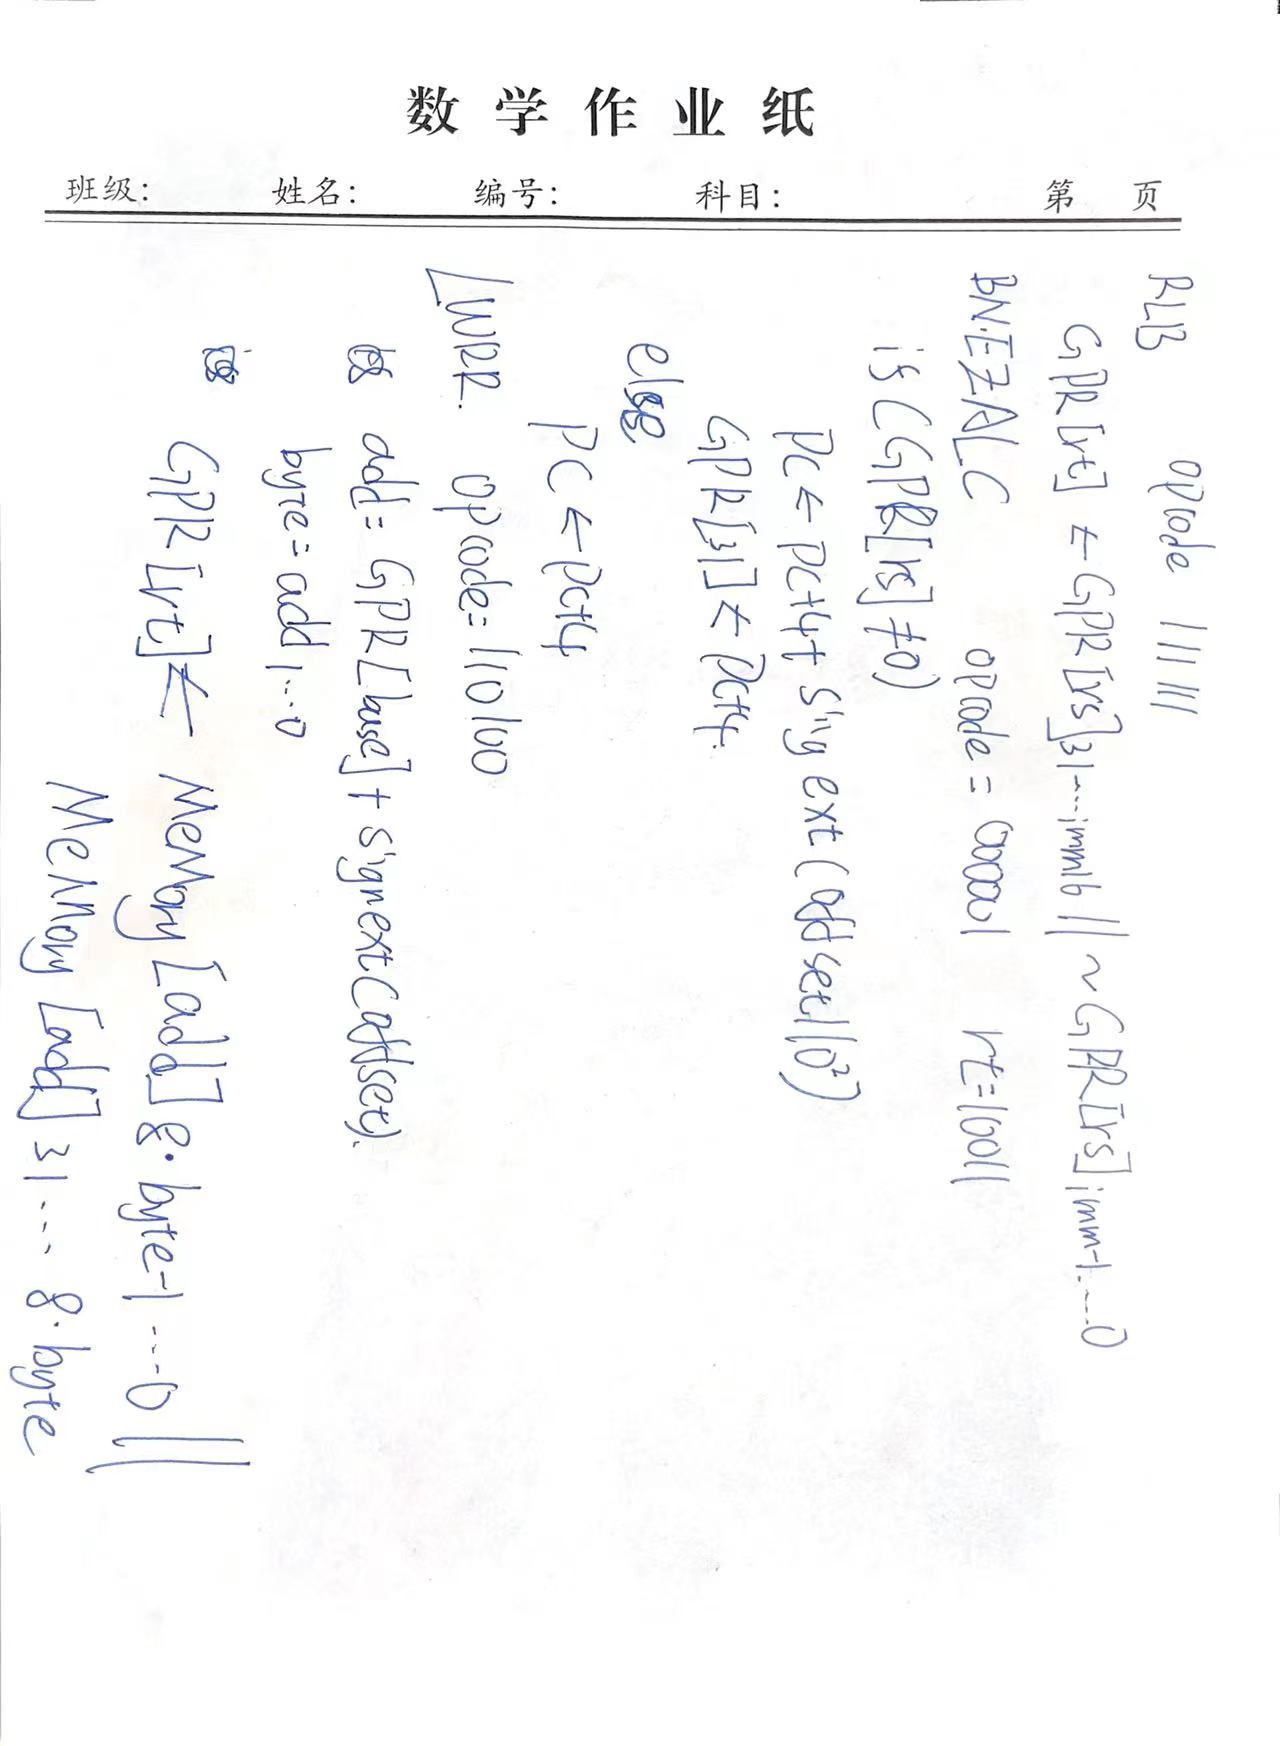 RLB opcode 111111
GPR[rt] ← GPR[rs]31...imm16 || ~GPR[rs]imm-1....0
BN.EZALC opcode = 000001 rt=10011
if (GPR[rs]≠0)
PC ← PC+4+ sing ext(offset||0²)
GPR[31] ← PC+4.
else
PC ← PC+4
LWRR. opcode=110100
add= GPR[base]+ signext(offset).
byte= add1...0
GPR[rt] ← MeMory[add]8·byte-1...0 ||
MeMory[add]31...8·byte
数学作业纸
班级: 姓名: 编号: 科目: 第 页